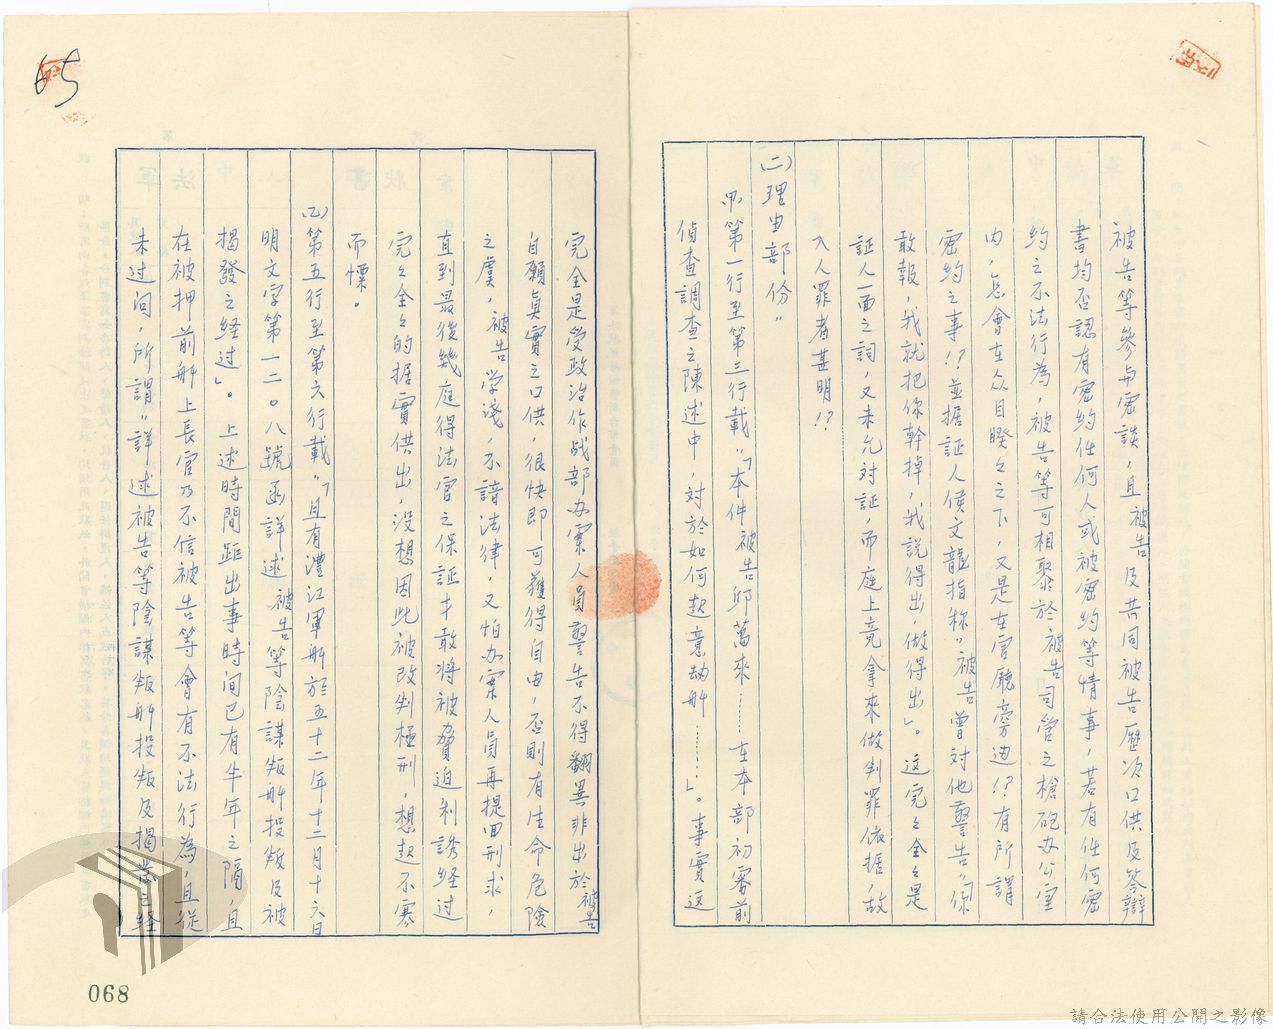 被告等參与密談，且被告及共同被告歷次口供及答辯
書均否認有密約任何人或被密約等情事，若有任何密
約之不法行為，被告等可相聚於被告司管之槍砲办公室
内，怎會在众目睽々之下，又是在官廳旁边!?有所謂
密約之事!?並据証人侯文龍指称"被告曾对他警告，你
敢報，我就把你幹掉，我說得出，做得出」。这完々全々是
証人一面之詞，又未允对証，而庭上竟拿來做判罪依据，故
入人罪者甚明!?
(二)理由部份"
甲，第一行至第三行載"「本件被告邱萬來……在本部初審前
偵查調查之陳述中，对於如何起意劫舺………」。事實这
完全是受政治作战部办案人員警告不得翻異非出於被告
自願眞實之口供，很快即可獲得自由，否則有生命危險
之虞，被告学淺，不諳法律，又怕办案人員再提回刑求，
直到最後幾庭得法官之保証才敢将被脅迫利誘经过
完々全々的据實供出，没想因此被改判極刑，想起不寒
而慄。
乙)第五行至第六行載"「且有澧江軍舺於五十二年十二月十六日
明文字第一二〇八號函詳述被告等陰謀叛舺投叛及被
揭發之经过」。上述時間距出事時间已有半年之隔，且
在被押前舺上長官乃不信被告等會有不法行為，且從
未过问，所謂"詳述被告等陰謀叛舺投叛及揭發之経
65
068
請合法使用公開之影像